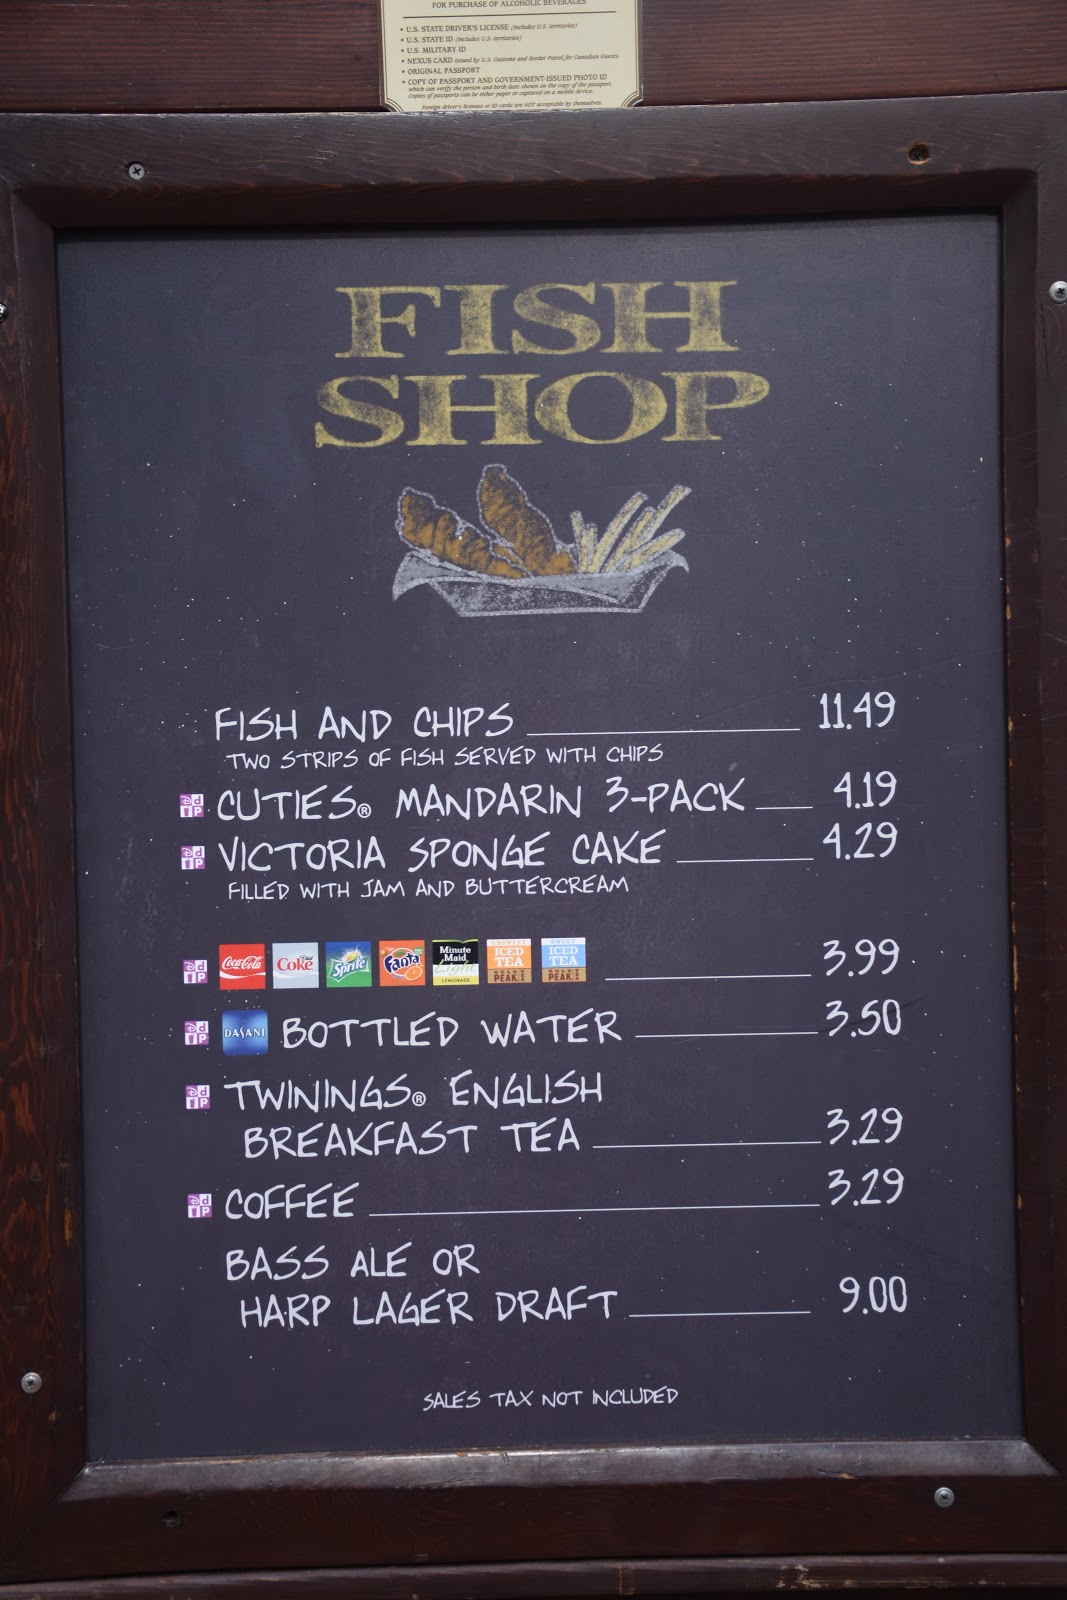 FOR PURCHASE OF ALCOHOLIC BEVERAGES
• U.S. STATE DRIVER'S LICENSE (Includes U.S. territories)
• U.S. STATE ID (Includes U.S. territories)
• U.S. MILITARY ID
• NEXUS CARD issued by U.S. Customs and Border Patrol for Canadian Guests.
• ORIGINAL PASSPORT
• COPY OF PASSPORT AND GOVERNMENT-ISSUED PHOTO ID
which can verify the person and birth date shown on the copy of the passport.
Copies of passports can be either paper or captured on a mobile device.
Foreign driver's licenses or ID cards are NOT acceptable by themselves
FISH
SHOP
FISH AND CHIPS 11.49
TWO STRIPS OF FISH SERVED WITH CHIPS
DdP CUTIES® MANDARIN 3-PACK 4.19
DdP VICTORIA SPONGE CAKE 4.29
FILLED WITH JAM AND BUTTERCREAM
DdP Coca-Cola Diet Coke Sprite Fanta Minute Maid Light LEMONADE UNSWEET ICED TEA GOLD PEAK SWEET ICED TEA GOLD PEAK 3.99
DdP DASANI BOTTLED WATER 3.50
DdP TWININGS® ENGLISH
BREAKFAST TEA 3.29
DdP COFFEE 3.29
BASS ALE OR
HARP LAGER DRAFT 9.00
SALES TAX NOT INCLUDED